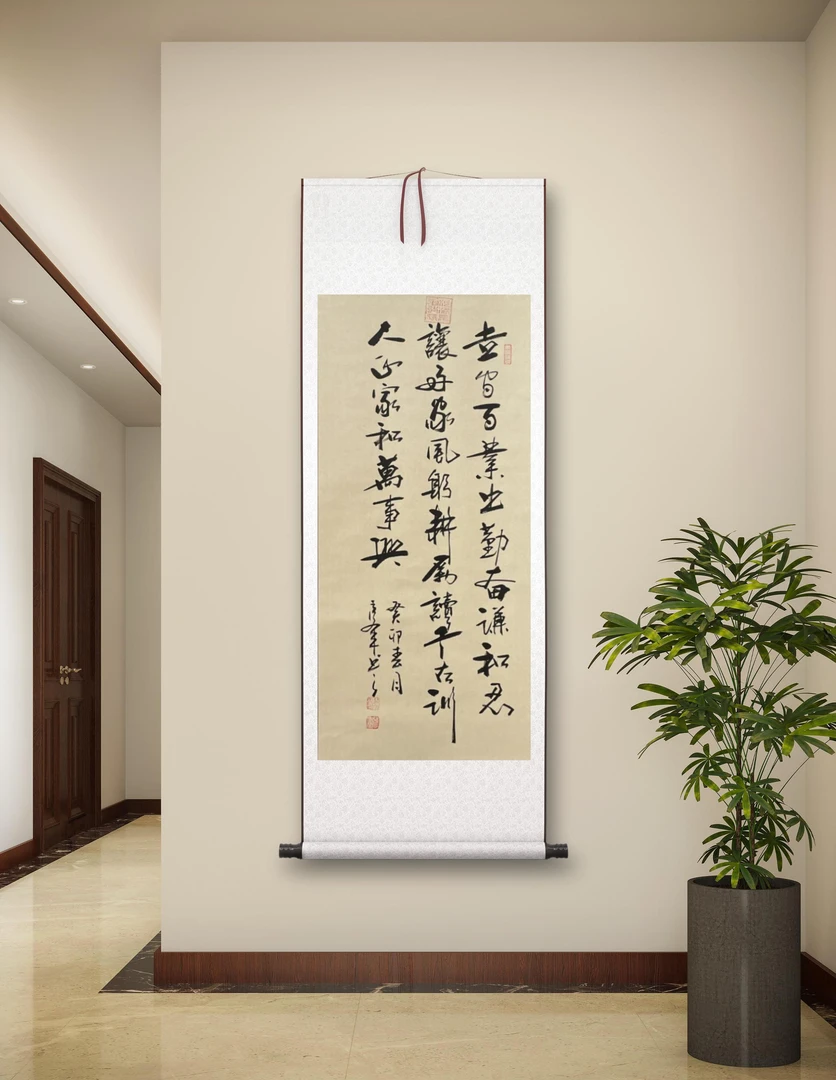 百業出勤奋謙和忍
讓好家風躬耕勵讀千古訓
人正家和萬事興
癸卯春月